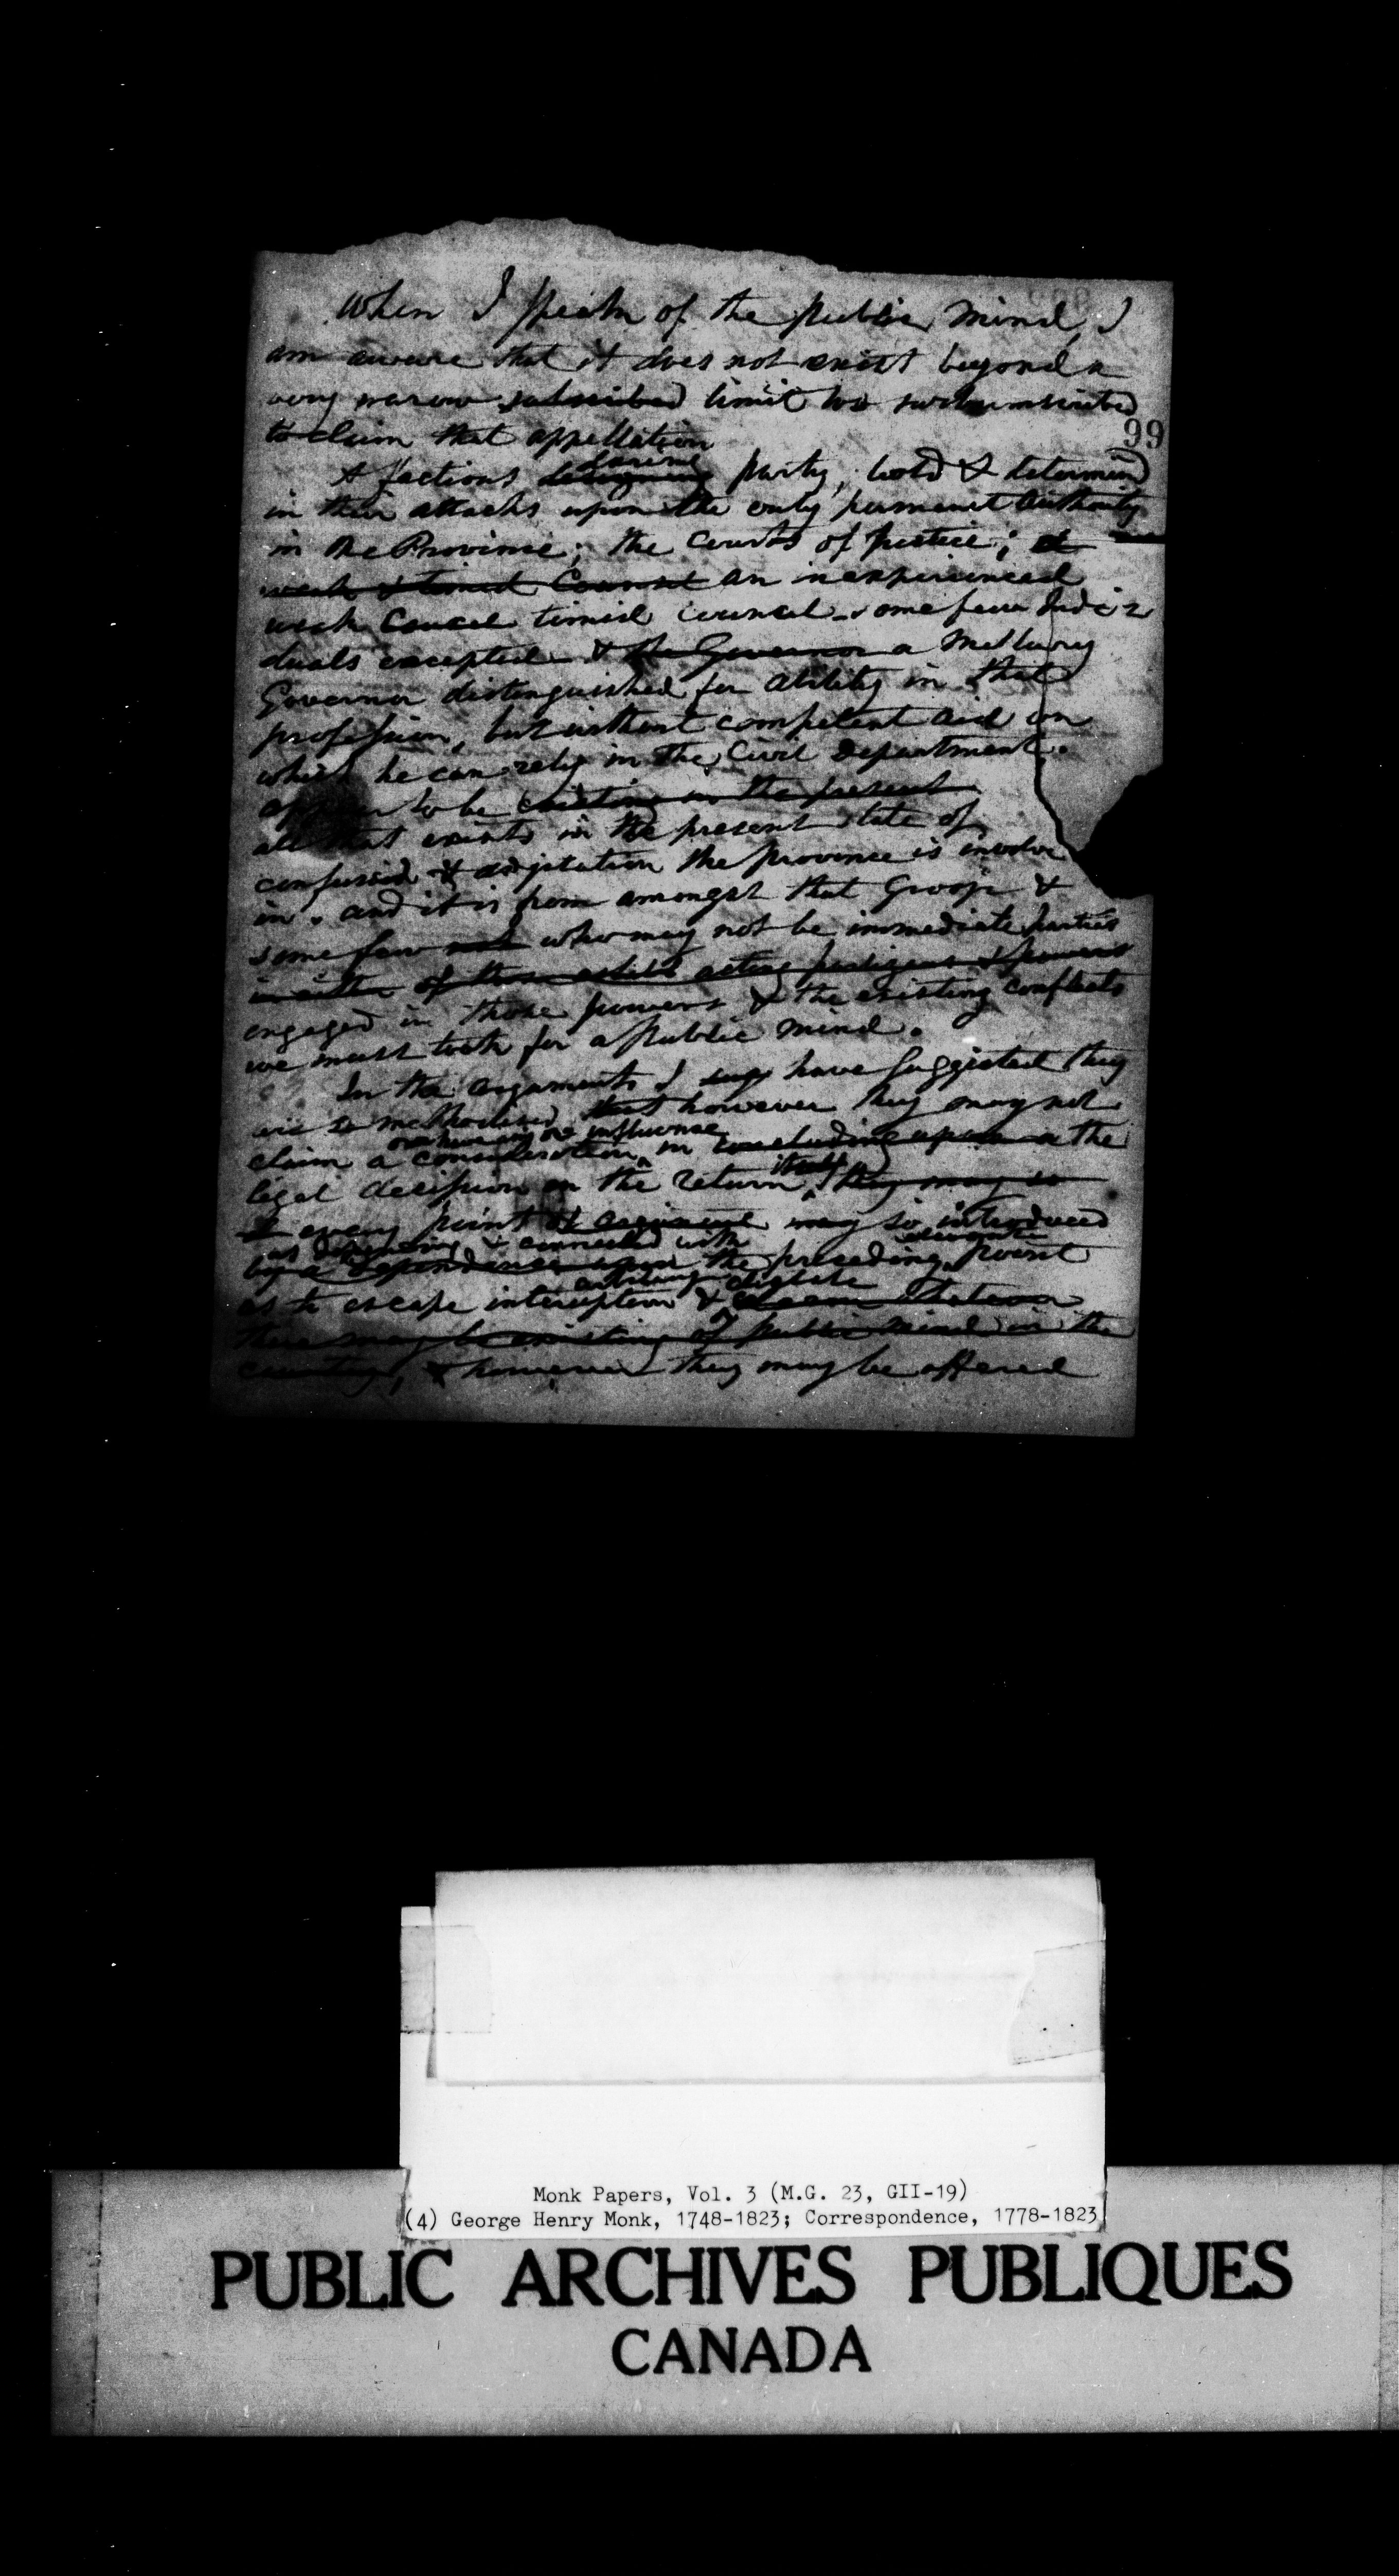 When I speak of the public mind, I
am aware that it does not exist beyond a
very narow subscribed limit too surcumscribed
to claim that appellation
99
daring
A factious designing party, bold & determined
in their attacks upon the only permanent Authority
in the Province; the Courts of Justice; a
weak & timid Council an inexperienced
weak timid Council some few Indivi
duals excepted & the Governor a Military
Governor distinguished for ability in that
profession, but without competent aid on
which he can rely in the Civil Department.
appear to be existing in the present
all that exists in the present state of
confusion & agitation the province is involv
in. and it is from amongst that Groop &
some few not who may not be immediate parties
in either of those acting parties & powers
engaged in those powers & the existing conflicts
we must look for a Public mind.
In the arguments I have suggested they
are so methodised that however they may not
or influence
claim a consideration in concluding upon a the
itself
legal decission on the return they may so
every point may so introduced
as depending & connected with
by a dependence upon the preceding point
as to escape interuption &
there may be existing of public mind in the
country, & however they may be offered
Monk Papers, Vol. 3 (M.G. 23, GII-19)
(4) George Henry Monk, 1748-1823; Correspondence, 1778-1823
PUBLIC ARCHIVES PUBLIQUES
CANADA